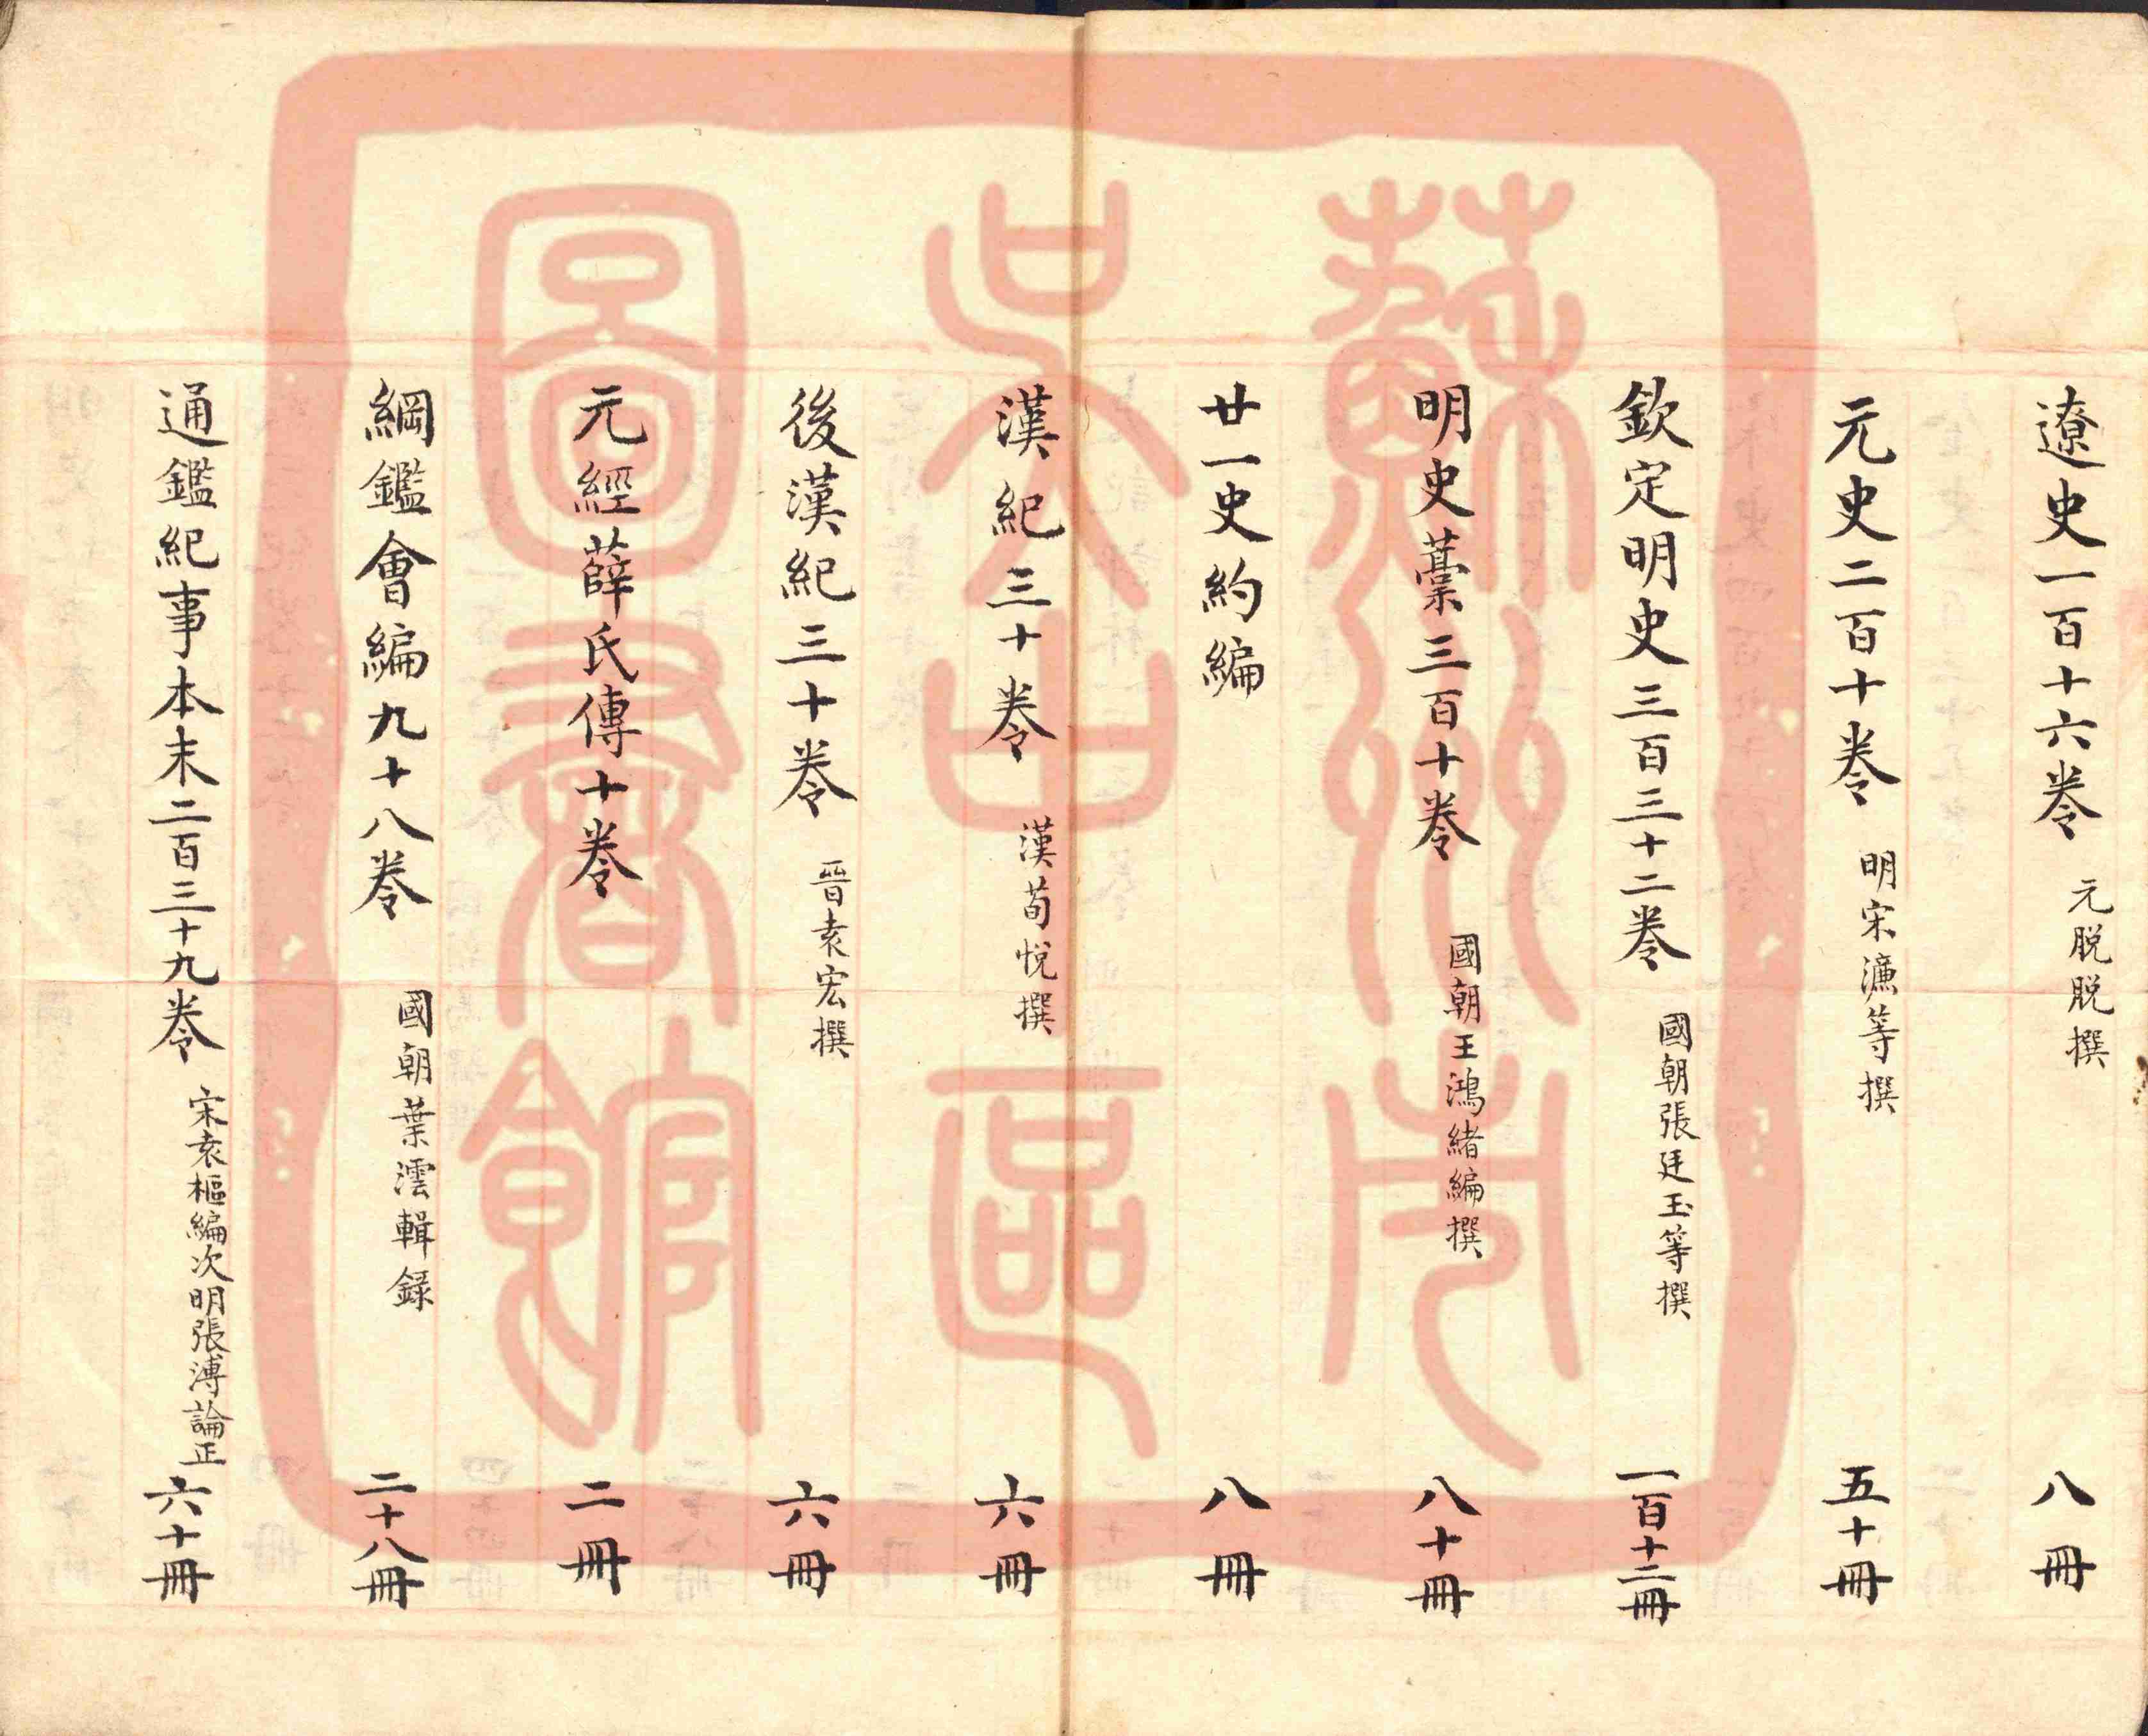 遼史一百十六卷 元脱脱撰 八冊
元史二百十卷 明宋濂等撰 五十冊
欽定明史三百三十二卷 國朝張廷玉等撰 一百十二冊
明史藁三百十卷 國朝王鴻緒編撰 八十冊
廿一史約編 八冊
漢紀三十卷 漢荀悅撰 六冊
後漢紀三十卷 晉袁宏撰 六冊
元經薛氏傳十卷 二冊
綱鑑會編九十八卷 國朝葉澐輯録 二十八冊
通鑑紀事本末二百三十九卷 宋袁樞編次明張溥論正 六十冊
蘇州市
吳中區
圖書館